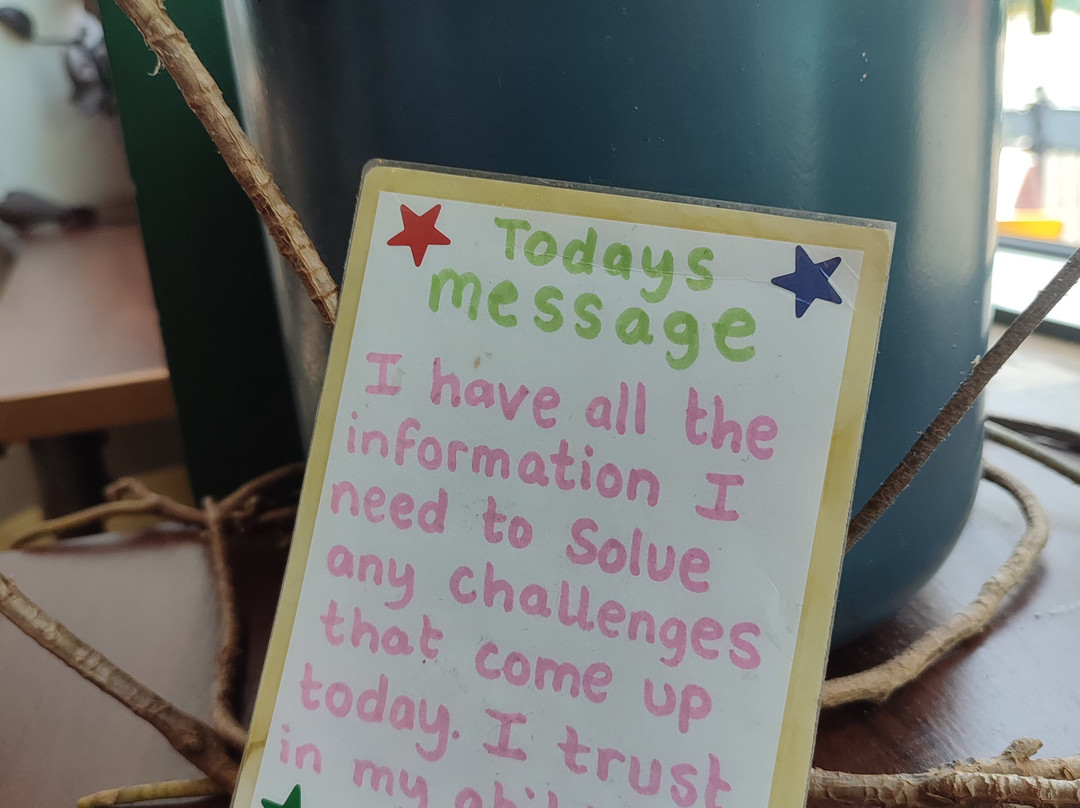 Todays
message
I have all the
information I
need to Solve
any challenges
that come up
today. I trust
in my